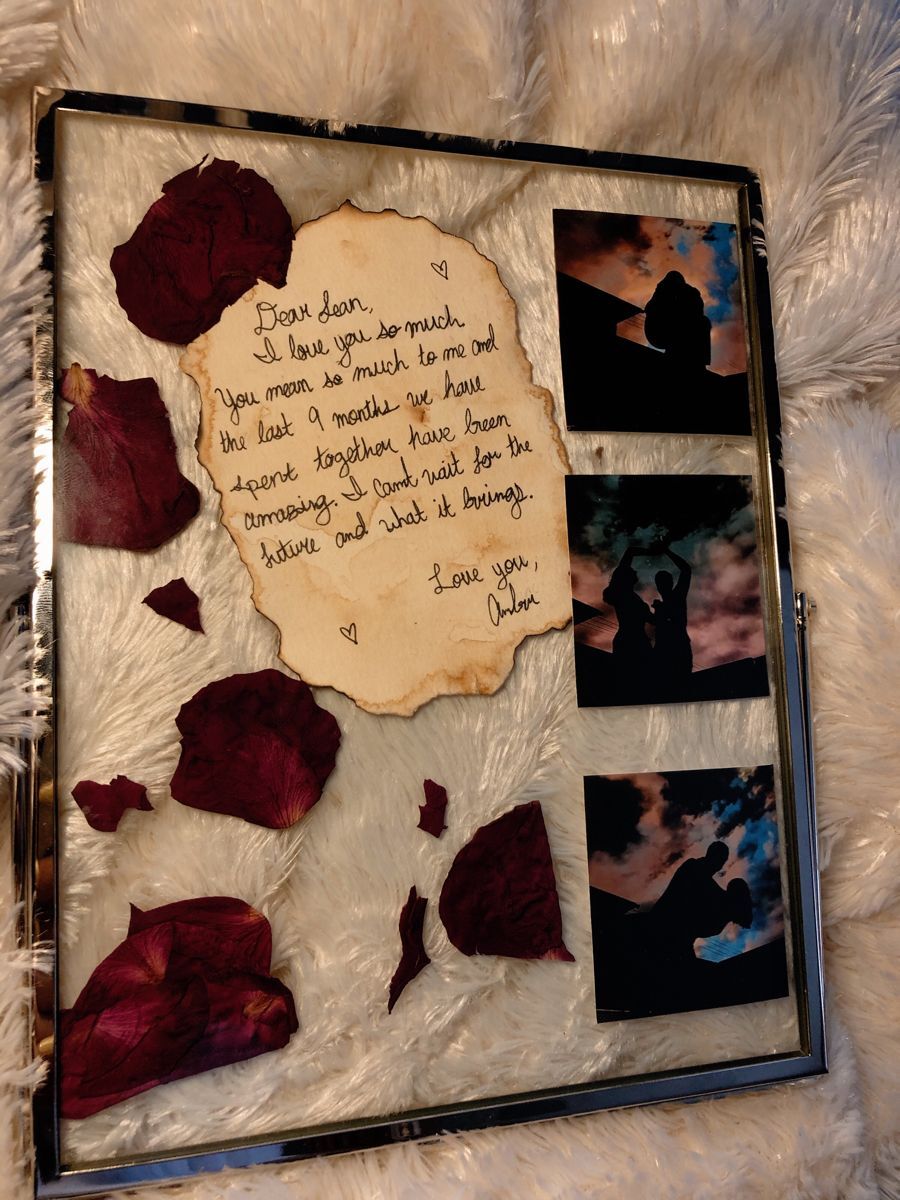 Dear Sean,
I love you so much
You mean so much to me and
the last 9 months we have
spent together have been
amazing. I cant wait for the
future and what it brings.
Love you,
Amber